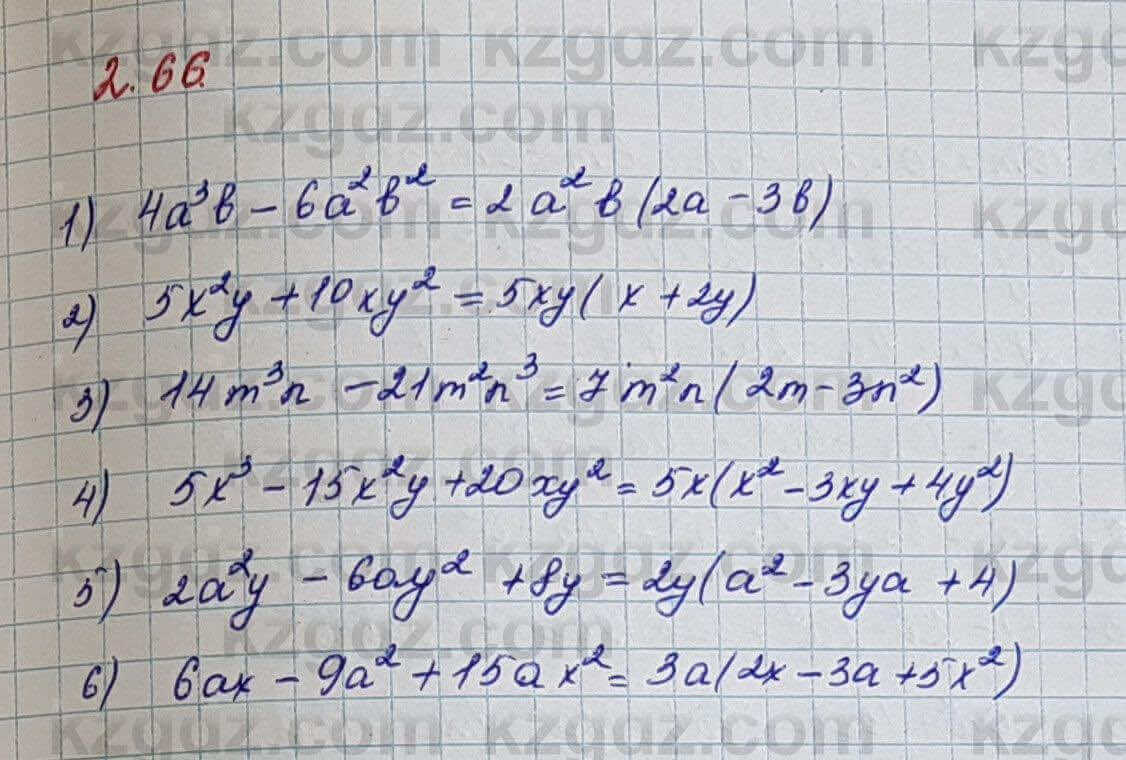 kzgdz.com kzgdz.com kzgdz
2.66.
kzgdz.com
1) 4a³b – 6a²b² = 2a²b(2a – 3b)
2) 5x²y + 10xy² = 5xy(x + 2y)
3) 14m³n – 21m²n³ = 7m²n(2m – 3n²)
4) 5x³ – 15x²y + 20xy² = 5x(x² – 3xy + 4y²)
5) 2a²y – 6ay² + 8y = 2y(a² – 3ya + 4)
6) 6ax – 9a² + 15ax² = 3a(2x – 3a + 5x²)
kzgdz.com kzgdz.com kzgdz